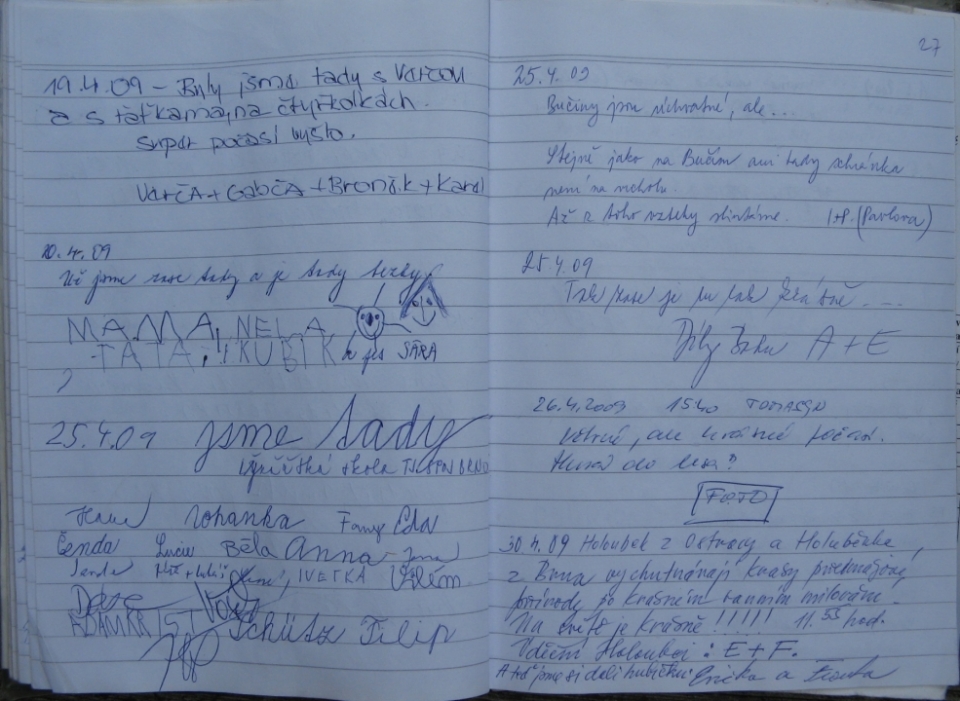 19.4.09 – Byly jsme tady s Varčou
a s taťkama, na čtyřkolkách.
supr počasí byslo.
VarčA + GabčA + Brončik + Karel
20.4.09
Už jsme zase tady a je tady hezky
MAMA, NELA
TATA, KUBÍK a pes SÁRA
25.4.09 jsme tady
škola BRNO
Hana Johanka Fany Eda
Čenda Lucie Běla Anna Jana
Jenda IVETKA Vilém
ADAMAR
Schütz Filip
27
25.4.09
Bučiny jsou úchvatné, ale...
Stejně jako na Bučině ani tady schránka
není na vrcholu.
Až z toho vzteky slintáme. I+P. (Pavlova)
25.4.09
Tak zase je tu tak krásně ....
A + E
26.4.2009 1540
Větrné, ale krásné počasí.
Hurá do lesa!
FOTO
30.4.09 Holoubek z Ostravy a Holubička
z Brna vychutnávají krásy předmájové
přírody po krásném ranním milování.
Na světě je krásně!!!!! 11.55 hod.
Vděční Holoubci : E + F.
A teď jsme si dali hubičku a